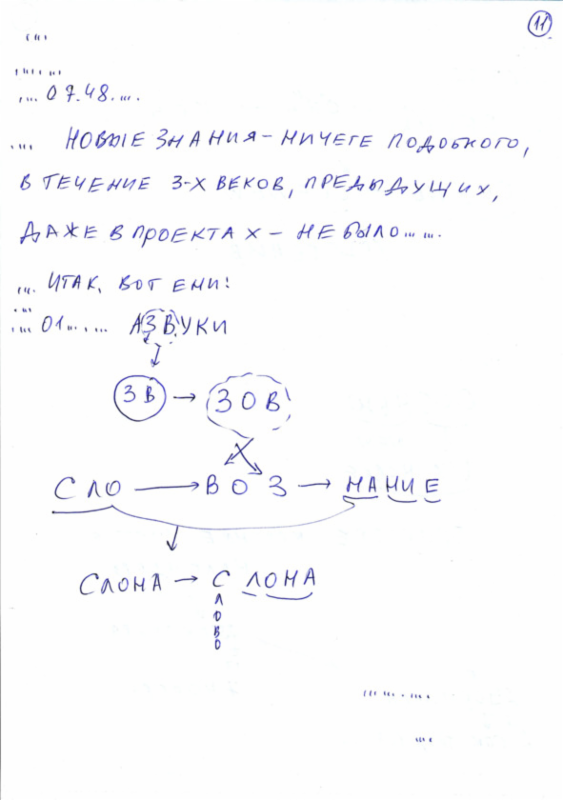 11
....
.... .. ..
.... 07.48. ....
.... НОВЫЕ ЗНАНИЯ – НИЧЕГЕ ПОДОБНОГО,
В ТЕЧЕНИЕ 3-Х ВЕКОВ, ПРЕДЫДУЩИХ,
ДАЖЕ В ПРОЕКТАХ – НЕ БЫЛО... ...
.... ИТАК, ВОТ ЕНИ!
.... 01....... АЗВУКИ
ЗВ → ЗОВ
СЛО → ВОЗ → НАНИЕ
СЛОНА → СЛОНА
Л
О
В
О